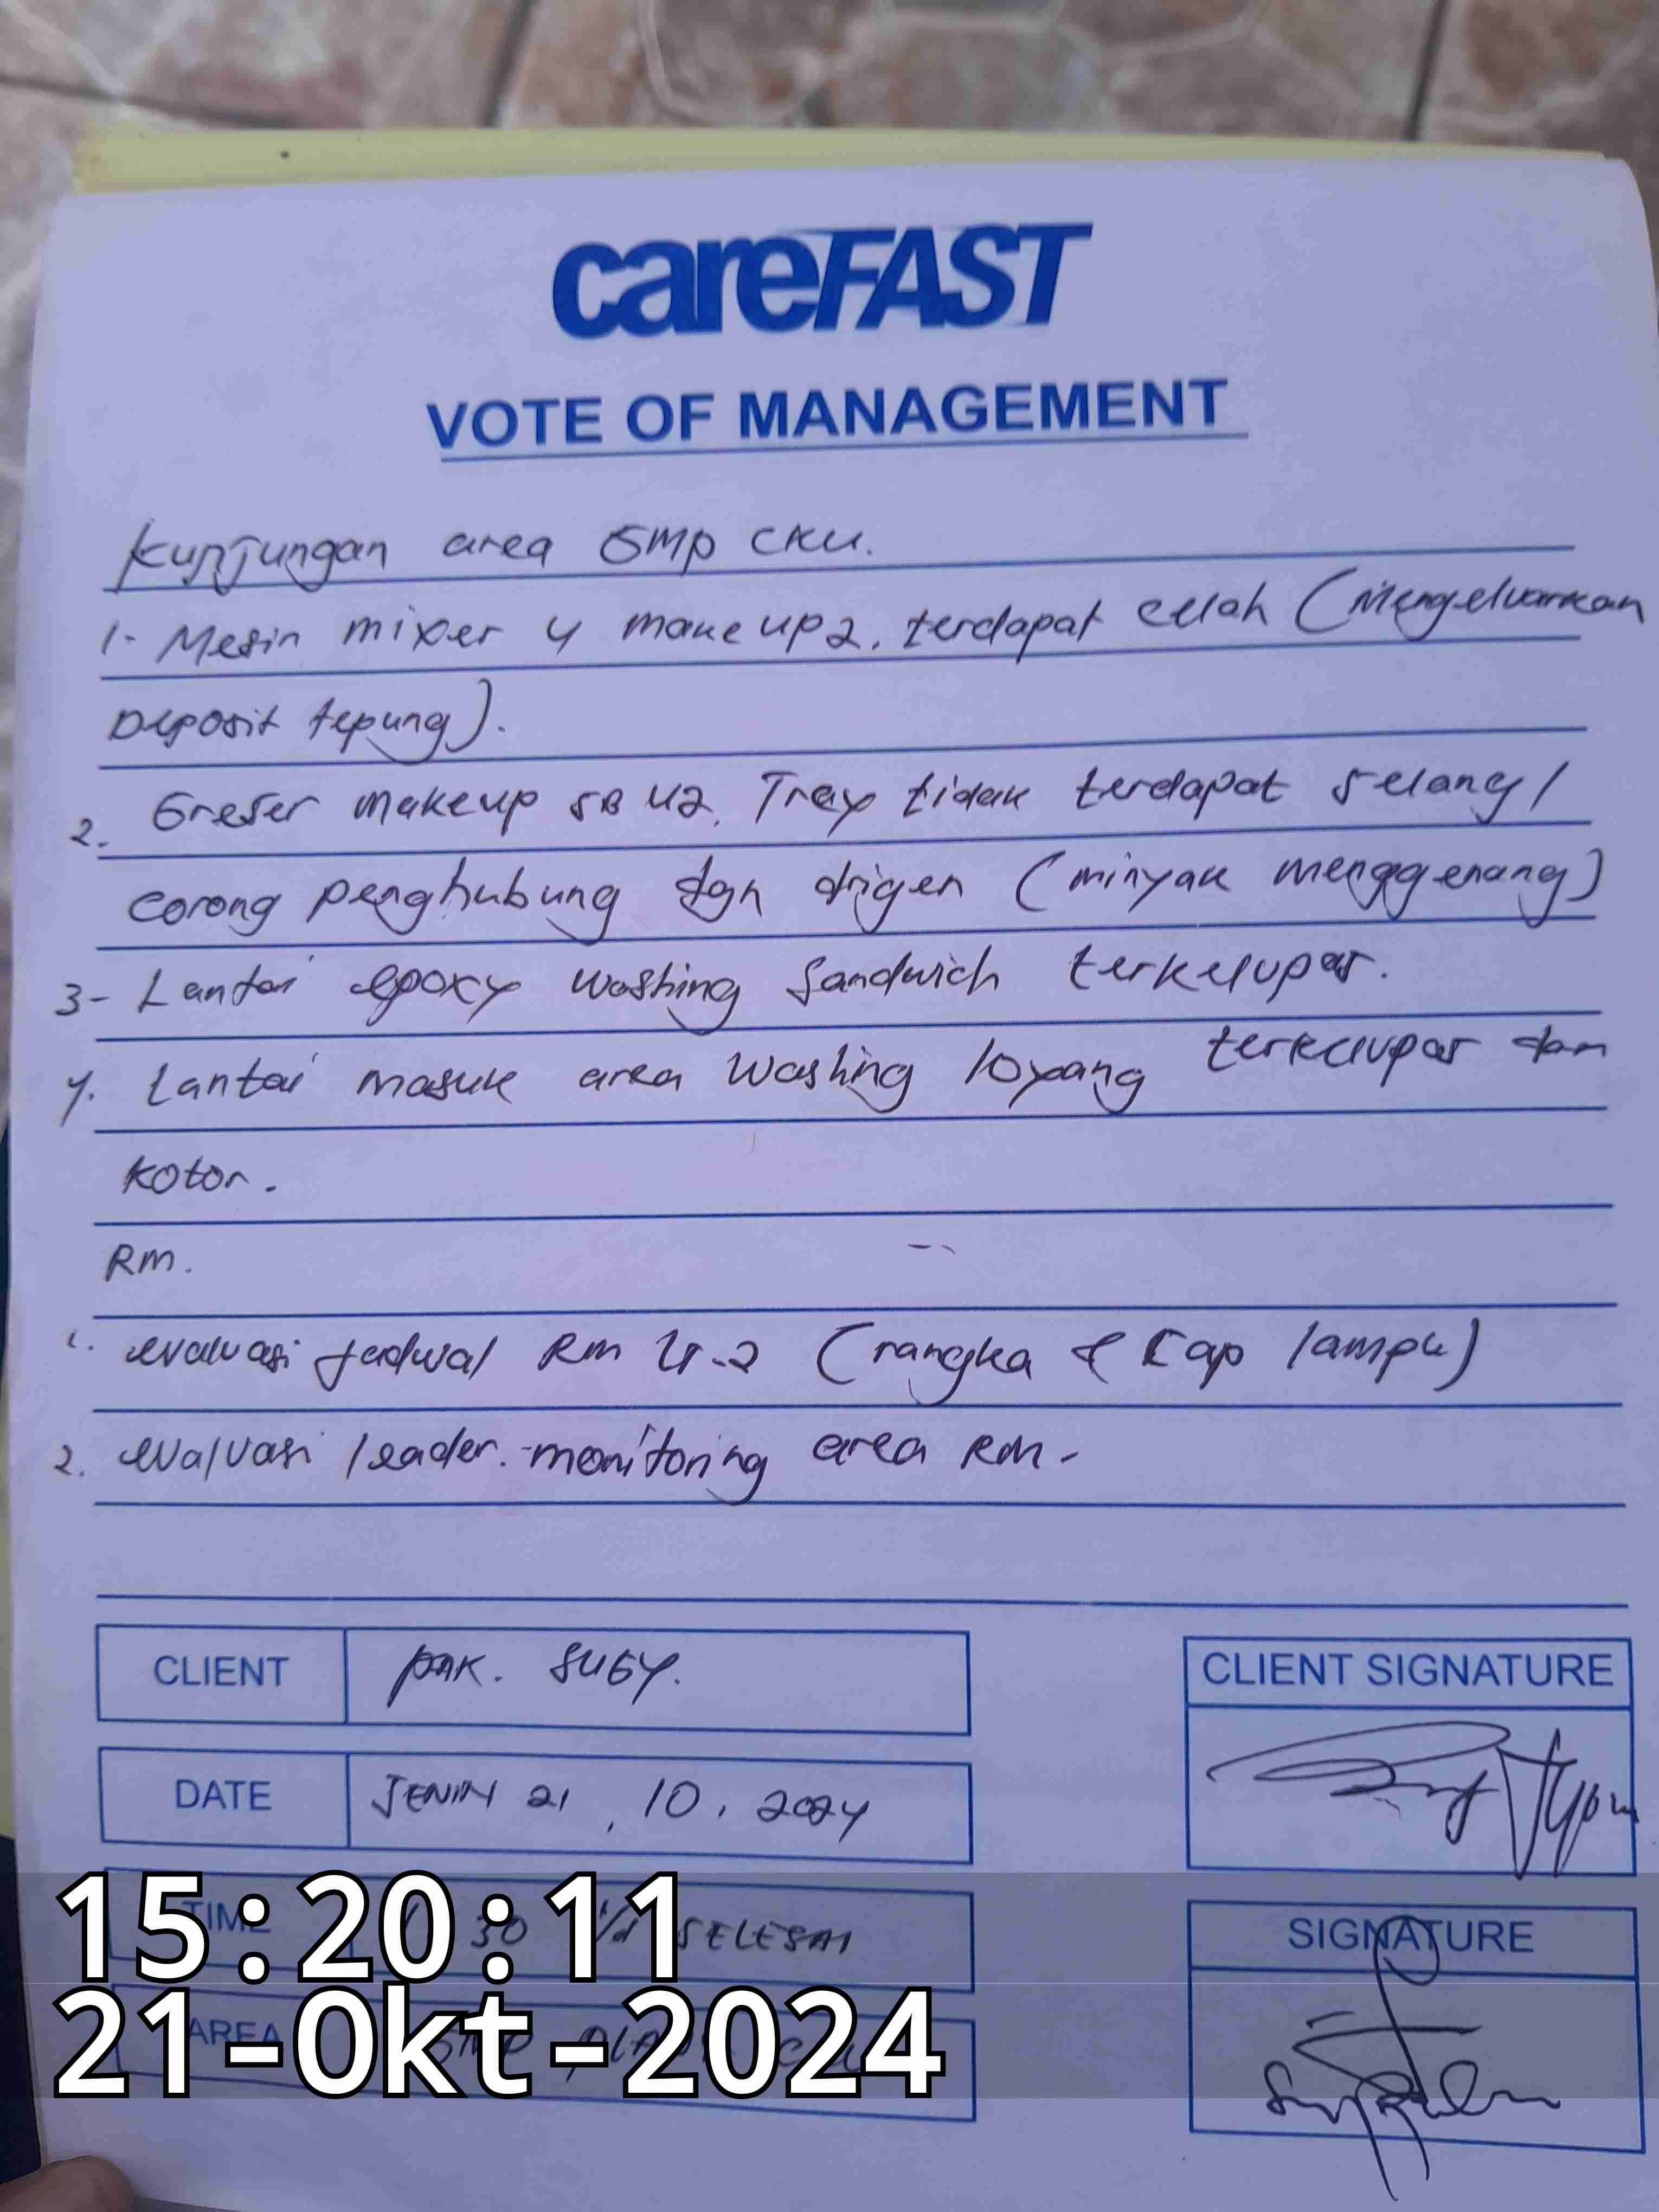 careFAST
VOTE OF MANAGEMENT
Kunjungan area GMP CKU.
1- Mesin mixer 4 make up 2. terdapat celah (Mengeluarkan
Deposit tepung).
2. Greser makeup SB U2. Tray tidak terdapat selang /
corong penghubung dgn drigen (minyak menggenang)
3- Lantai epoxy washing Sandwich terkelupas.
4. Lantai masuk area washing loyang terkelupas dan
kotor.
RM.
1. evaluasi jadwal RM (rangka & Cap lampu)
2. evaluasi leader. monitoring area RM-
CLIENT PAK. SUGY.
CLIENT SIGNATURE
DATE SENIN 21, 10, 2024
TIME 30 s/d SELESAI
SIGNATURE
AREA GMP
15:20:11
21-Okt-2024